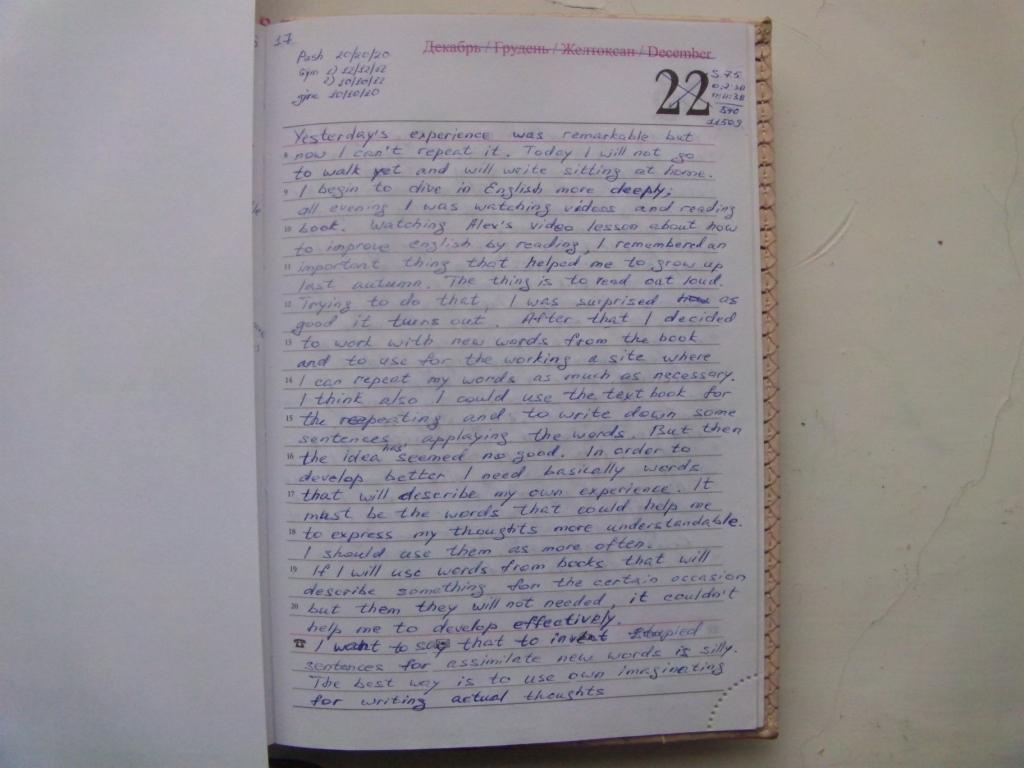 17
Push 20/20/20
Gym 1) 12/12/12
2) 10/10/12
gira 20/20/20
Декабрь / Грудень / Желтоксан / December
22
S 7.5
11509
Yesterday's experience was remarkable but
now I can't repeat it. Today I will not go
to walk yet and will write sitting at home.
9 I begin to dive in English more deeply;
all evening I was watching videos and reading
10 book. Watching Alex's video lesson about how
to improve english by reading, I remembered an
11 important thing that helped me to grow up
last autumn. The thing is to read out loud.
12 Trying to do that, I was surprised how as
good it turns out. After that I decided
13 to work with new words from the book
and to use for the working a site where
14 I can repeat my words as much as necessary.
I think also I could use the textbook for
15 the repeating and to write down some
sentences, applaying the words. But then
16 the idea has seemed no good. In order to
develop better I need basically words
17 that will describe my own experience. It
must be the words that could help me
18 to express my thoughts more understandable.
I should use them as more often.
19 If I will use words from books that will
describe something for the certain occasion
20 but them they will not needed, it couldn't
help me to develop effectively.
☎ I want to say that to invent stupied
sentences for assimilate new words is silly.
The best way is to use own imaginating
for writing actual thoughts